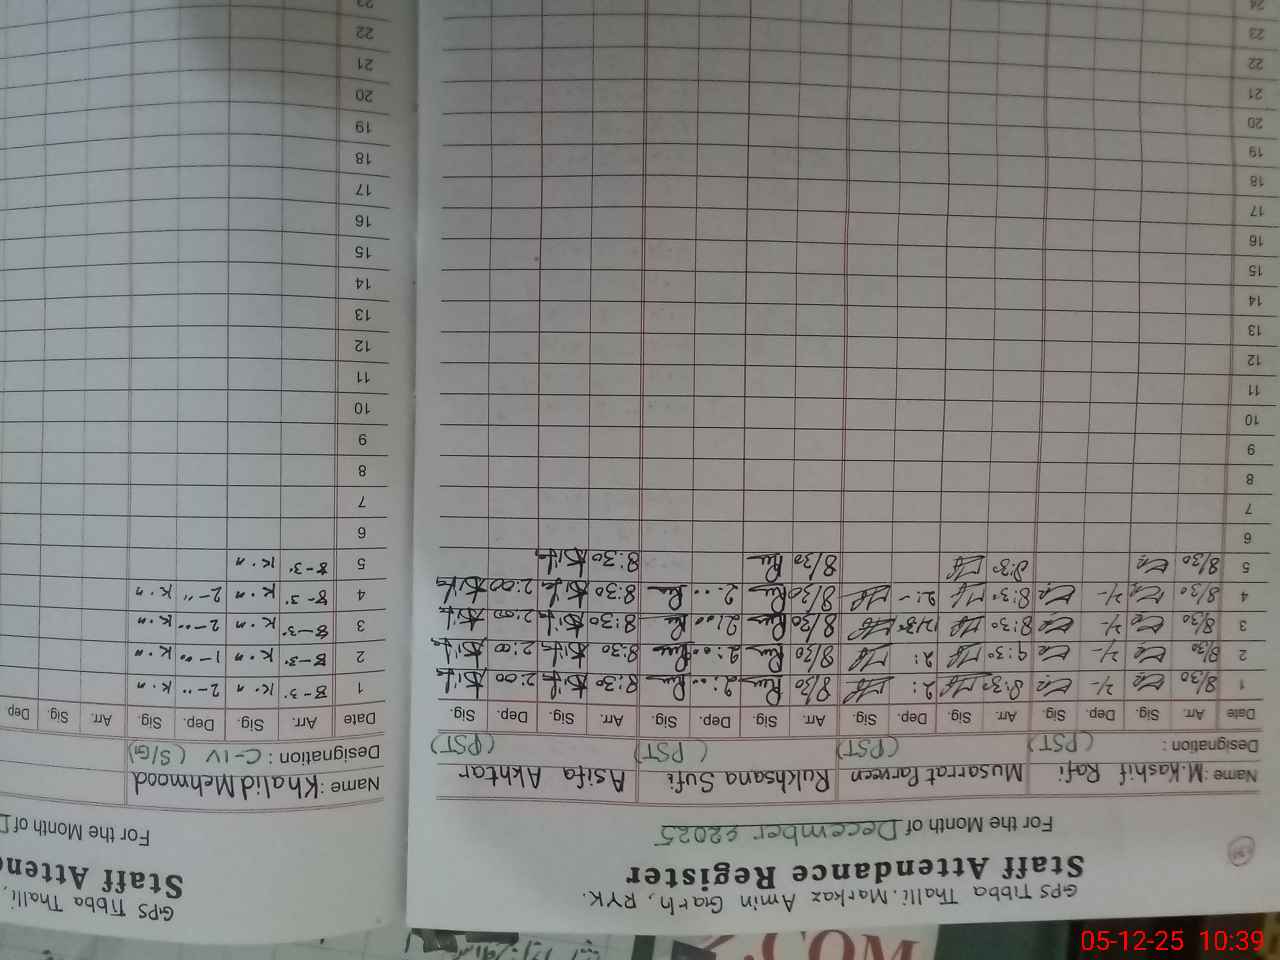 GPS Tibba Thalli. Markaz Amin Garh, RYK.
Staff Attendance Register
For the Month of December 2025
Name : M.Kashif Rafi Musarrat Parveen Rukhsana Sufi Asifa Akhtar
Designation : (PST) (PST) (PST) (PST)
Date Arr. Sig. Dep. Sig. Arr. Sig. Dep. Sig. Arr. Sig. Dep. Sig. Arr. Sig. Dep. Sig.
1 8/30 2/- 8:30 2: 8/30 2:00 8:30 2:00
2 8/30 2/- 9:30 2: 8/30 2:00 8:30 2:00
3 8/30 2/- 8:30 8/30 2:00 8:30 2:00
4 8/30 2/- 8:30 2:- 8/30 2:00 8:30 2:00
5 8/30 8:30 8/30 8:30
6
7
8
9
10
11
12
13
14
15
16
17
18
19
20
21
22
23
24
GPS Tibba Thalli.
Staff Atten
For the Month of D
Name : Khalid Mehmood
Designation : C-IV (S/G)
Date Arr. Sig. Dep. Sig. Arr. Sig. Dep
1 8-30 K.n 2-00 K.n
2 8-30 K.n 1-00 K.n
3 8-30 K.n 2-00 K.n
4 8-30 K.n 2-00 K.n
5 8-30 K.n
6
7
8
9
10
11
12
13
14
15
16
17
18
19
20
21
22
23
05-12-25 10:39